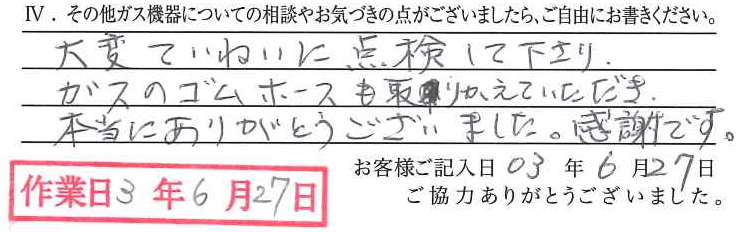 Ⅳ．その他ガス機器についての相談やお気づきの点がございましたら、ご自由にお書きください。
大変ていねいに点検して下さり.
ガスのゴムホースも取りかえていただき.
本当にありがとうございました。感謝です。
お客様ご記入日 03 年 6 月27日
作業日3 年 6 月27日
ご協力ありがとうございました。